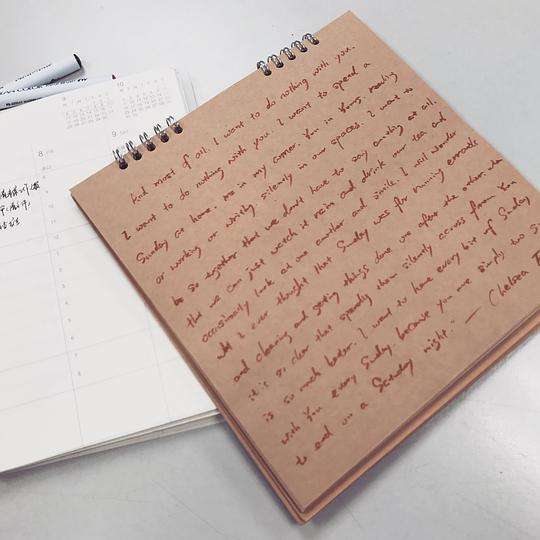 Kind most of all. I want to do nothing with you.
I want to do nothing with you. I want to spend a
Sunday at home. me in my corner. You in Yours, reading
or working or writing silently in our spaces. I want to
be so together that we don't have to say anything at all.
that we can just watch it rain and drink our tea and
occasionally look at one another and smile. I will wonder
why I ever thought that Sunday was for running errands
and cleaning and getting things done one after the other. when
it is so clear that spending them silently across from You
is so much better. I want to have every bit of Sunday
with You every Sunday. because you are simply two
to end on a Saturday night." — Chelsea